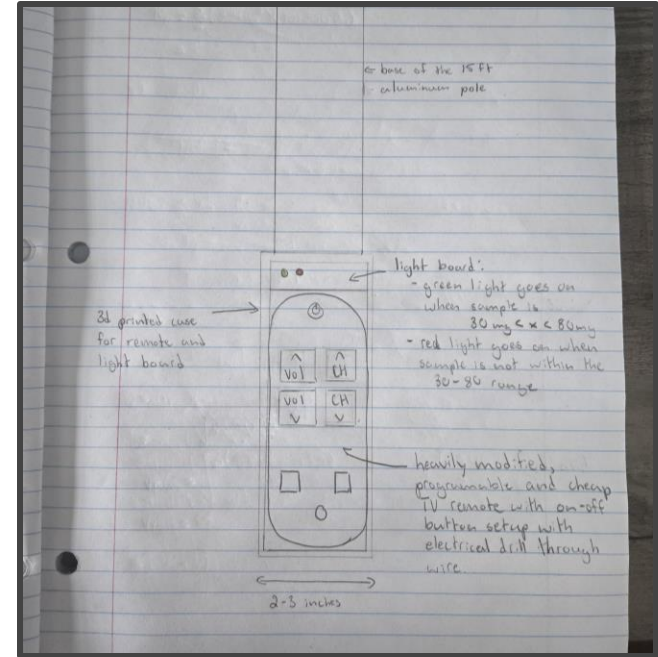 ← base of the 15 ft
aluminum pole
light board:
- green light goes on
when sample is
30 mg < x < 80mg
- red light goes on when
sample is not within the
30-80 range
3d printed case
for remote and
light board
Vol CH
Vol CH
heavily modified,
programmable and cheap
TV remote with on-off
button setup with
electrical drill through
wire.
2-3 inches